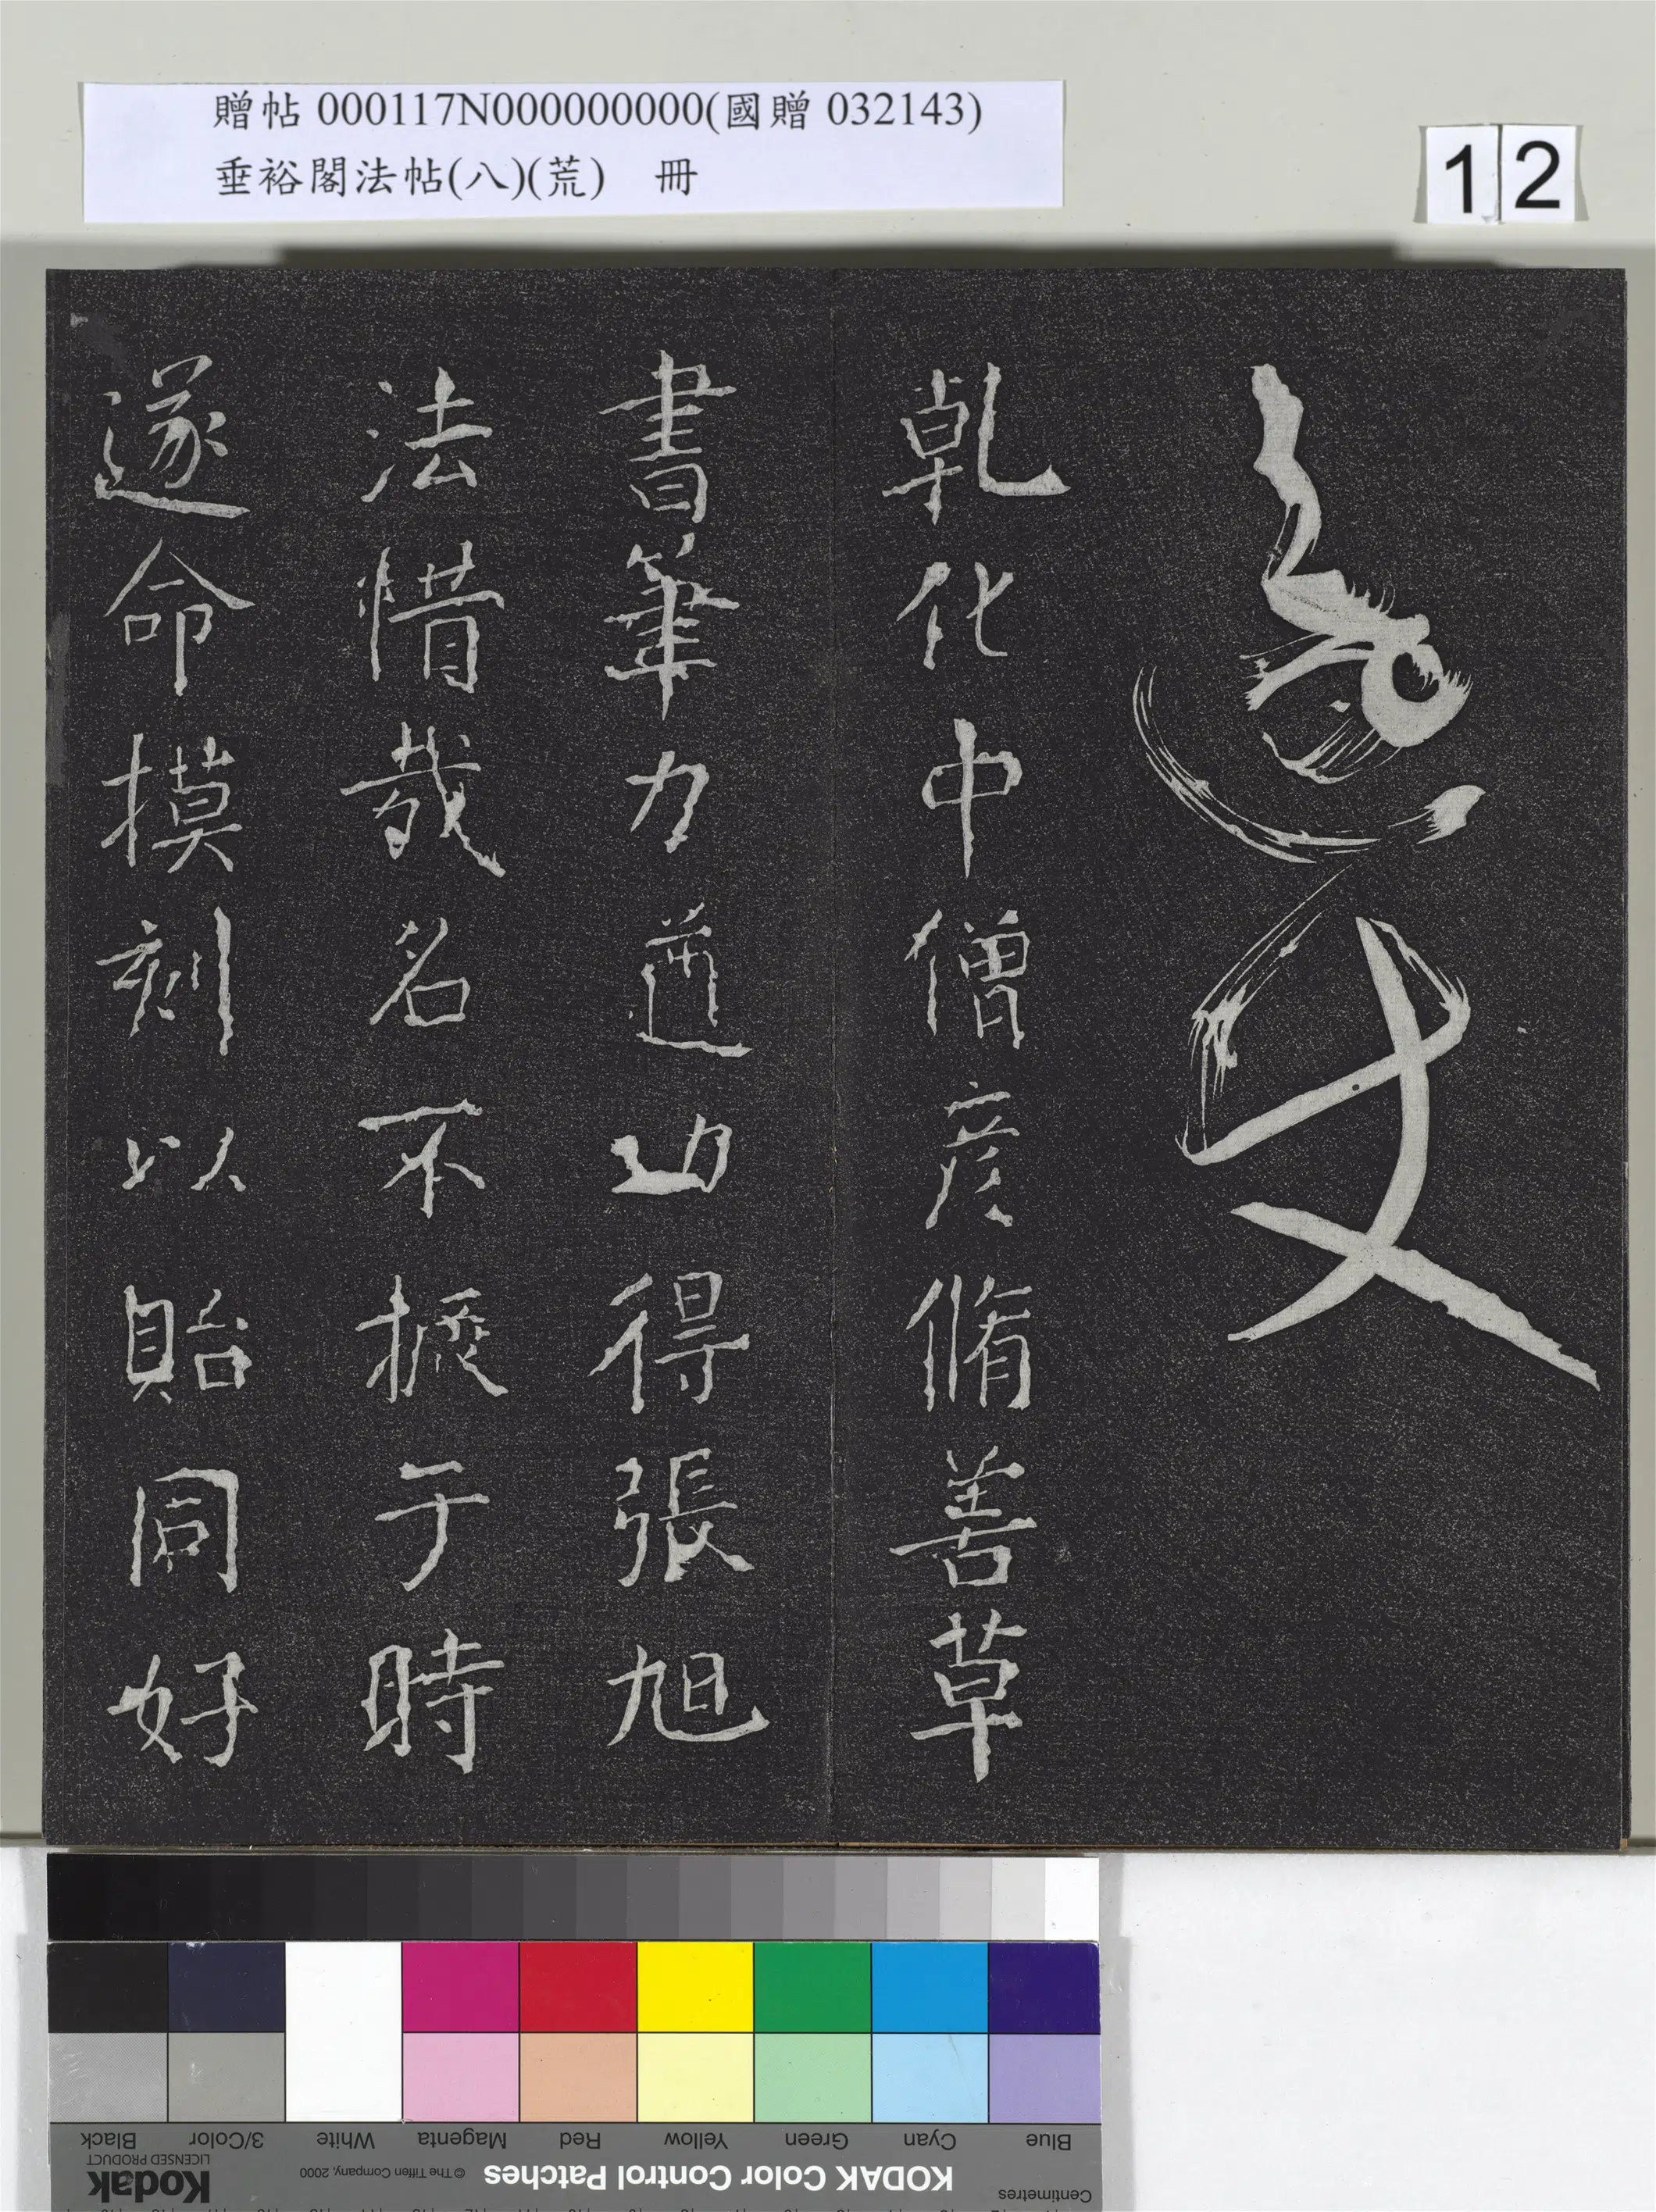 贈帖 000117N000000000(國贈 032143)
垂裕閣法帖(八)(荒) 冊
12
乹化中僧彦脩善草
書筆力遒功得張旭
法惜哉名不振于時
遂命摸刻以貽同好
Black 3/Color White Magenta Red Yellow Green Cyan Blue
Kodak LICENSED PRODUCT © The Tiffen Company, 2000 KODAK Color Control Patches Centimetres